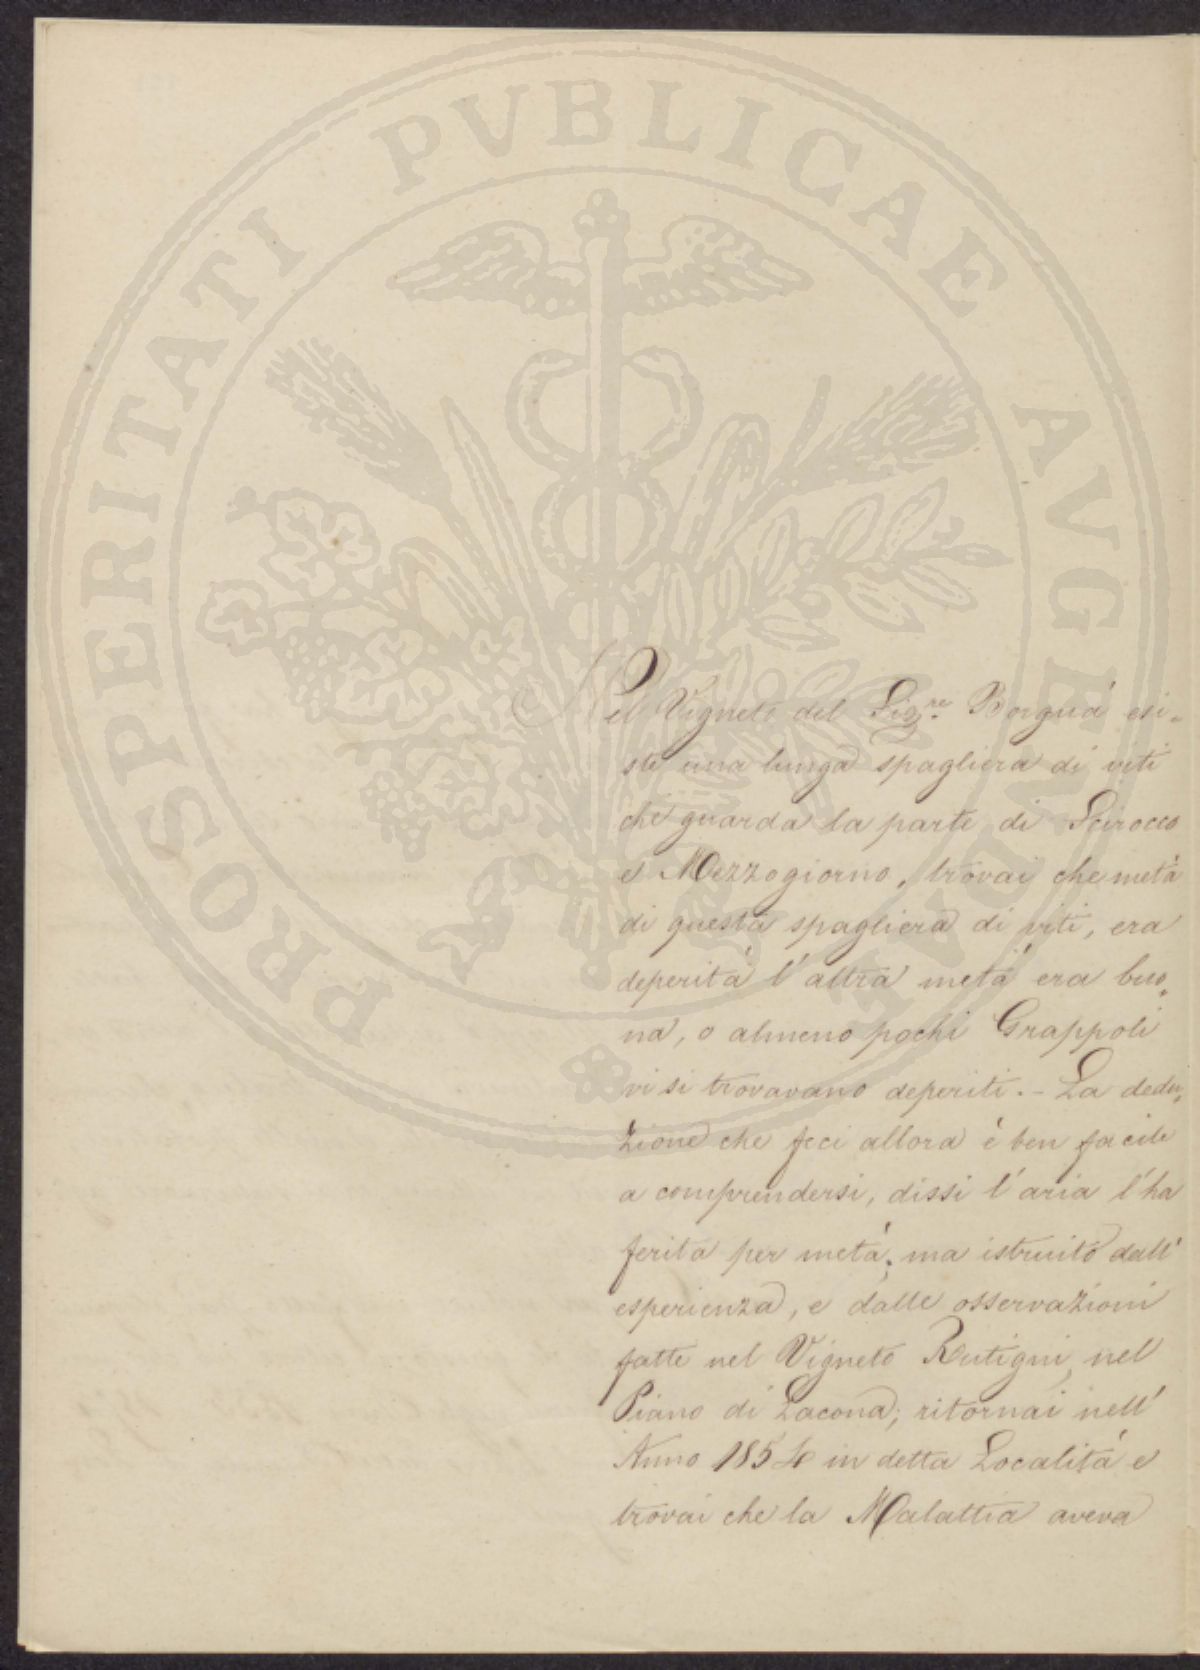 PROSPERITATI PUBLICAE AUGENDAE
Nel Vigneto del Sig.re Borguá esi-
ste una lunga spagliera di viti
che guarda la parte di Scirocco
e Mezzogiorno, trovai che metá
di questa spagliera di viti, era
deperita l'altra metá era buo-
na, o almeno pochi Grappoli
vi si trovavano deperiti. - La dedu-
zione che feci allora é ben facile
a comprendersi, dissi l'aria l'ha
ferita per metá; ma istruito dall'
esperienza, e dalle osservazioni
fatte nel Vigneto Rutigni, nel
Piano di Lacona; ritornai nell'
Anno 1854 in detta Localitá e
trovai che la Malattia aveva